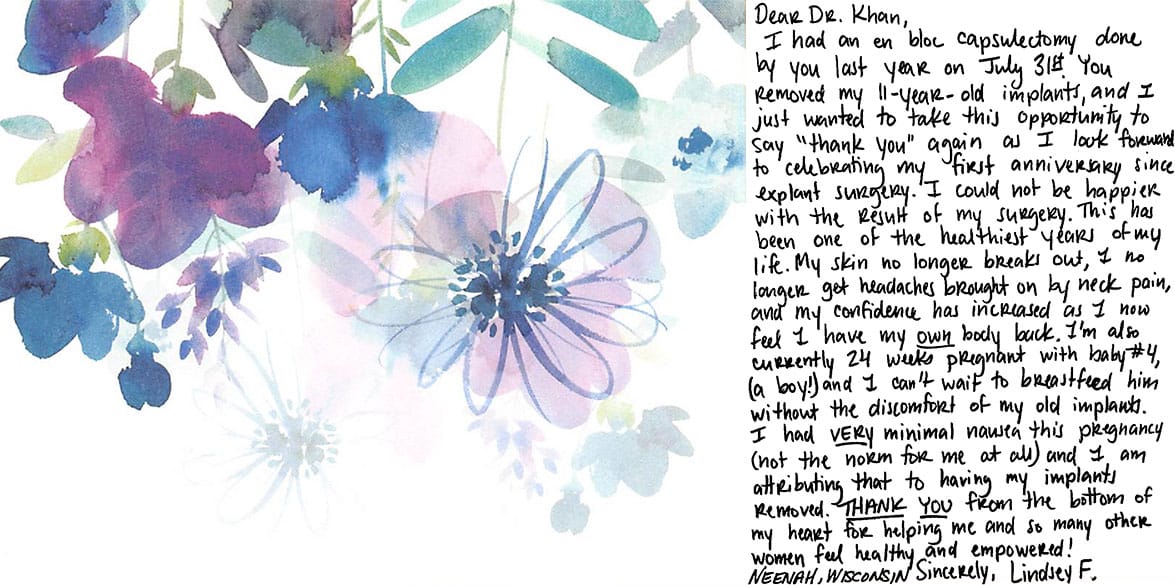 Dear Dr. Khan,
I had an en bloc capsulectomy done
by you last year on July 31st. You
removed my 11-year-old implants, and I
just wanted to take this opportunity to
say "thank you" again as I look forward
to celebrating my first anniversary since
explant surgery. I could not be happier
with the result of my surgery. This has
been one of the healthiest years of my
life. My skin no longer breaks out, I no
longer get headaches brought on by neck pain,
and my confidence has increased as I now
feel I have my own body back. I'm also
currently 24 weeks pregnant with baby #4,
(a boy!) and I can't wait to breastfeed him
without the discomfort of my old implants.
I had VERY minimal nausea this pregnancy
(not the norm for me at all) and I am
attributing that to having my implants
removed. THANK YOU from the bottom of
my heart for helping me and so many other
women feel healthy and empowered!
NEENAH, WISCONSIN Sincerely, Lindsey F.